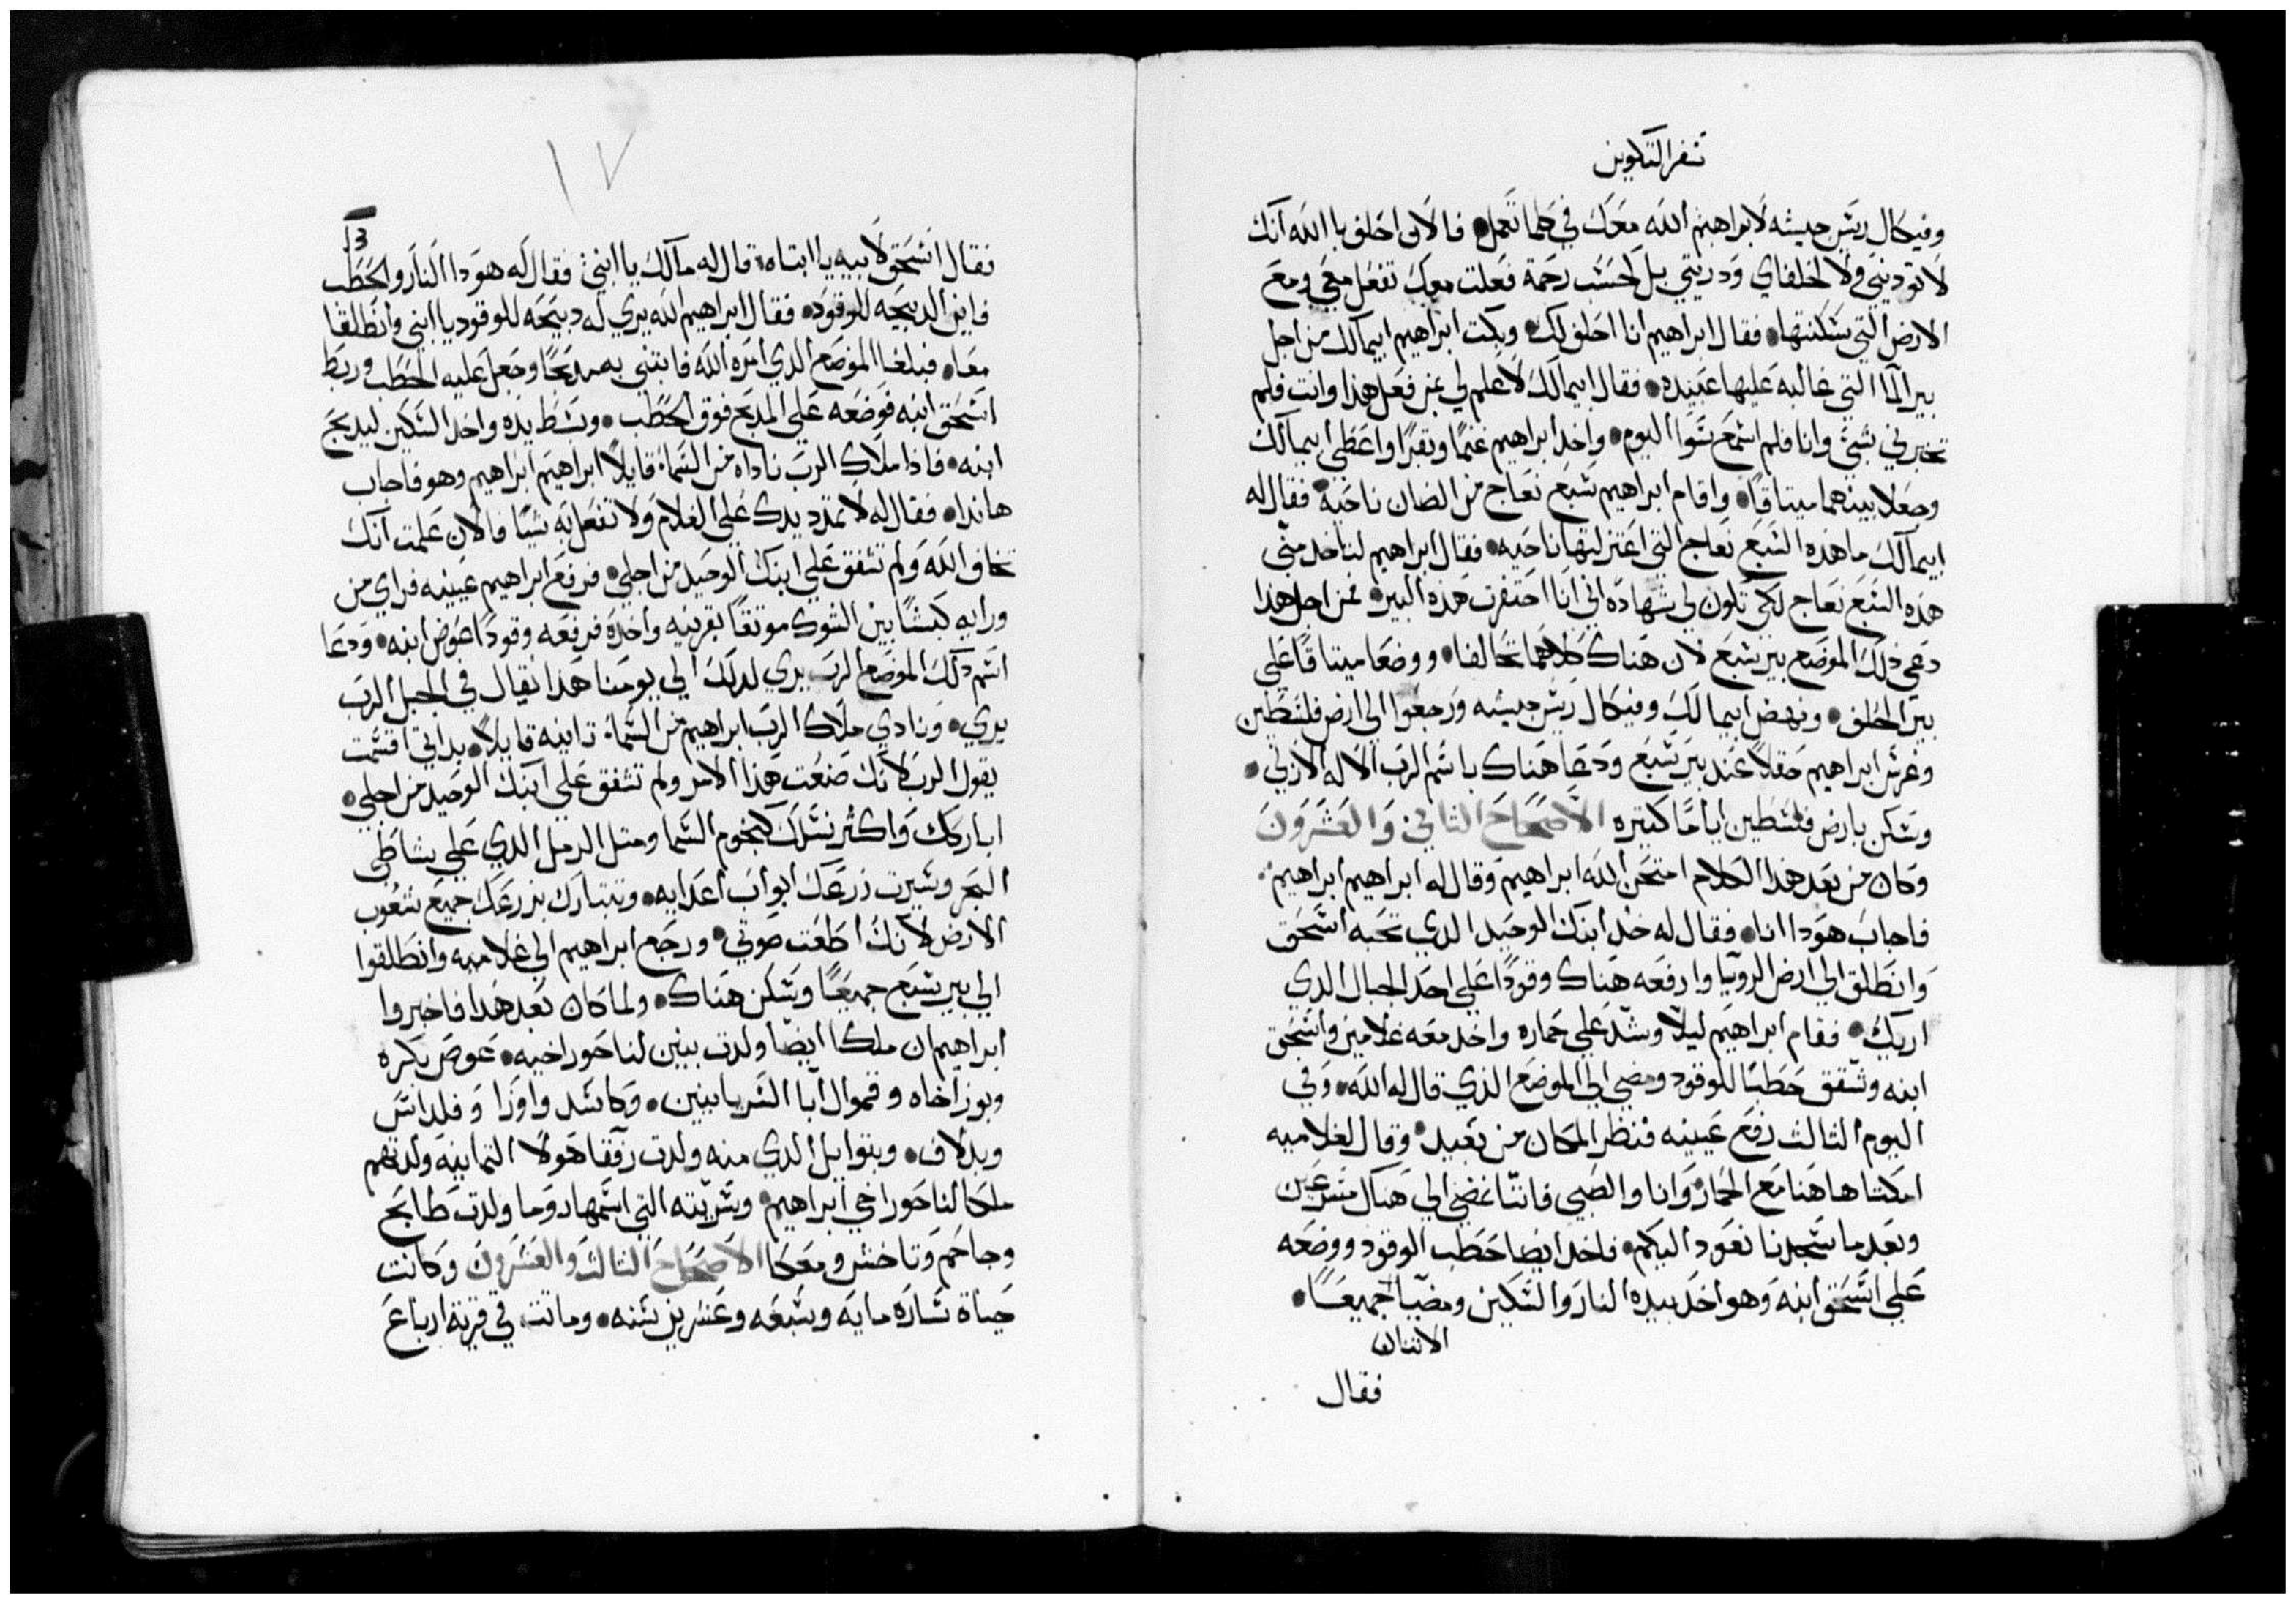 سفر التكوين
وفيكال ريس جيشه لابراهيم الله معك في كلما تعمل فالان احلف باالله انك
لا توديني ولا لخلفاي ودريتي بل كحسب رحمة فعلت معك تفعل معي ومع
الارض التي سكنتها فقال ابراهيم انا احلف لك وبكت ابراهيم ابيمالك من اجل
بير الما التي غالبه عليها عبيده فقال ابيمالك لا علم لي بمن فعل هذا وانت فلم
تخبرني بشي وانا فلم اسمع سوا اليوم واخد ابراهيم غنما وبقرا واعطي ابيمالك
وجعلا بينهما ميتاقا واقام ابراهيم سبع نعاج من الضان ناحية فقال له
ابيمالك ما هذه السبع نعاج التي اعتزلتها ناحيه فقال ابراهيم لتاخد مني
هذه السبع نعاج لكي تكون لي شهادة اني انا احتفرت هذه البير فمن اجل هذا
دعي ذلك الموضع بير سبع لان هناك كلاهما تحالفا ووضعا ميتاقا علي
بير الحلف ونهض ابيمالك وفيكال ريس جيشه ورجعوا الي ارض فلسطين
وغرس ابراهيم حقلا عند بير سبع ودعا هناك باسم الرب الاله الازلي
وسكن بارض فلسطين اياما كتيره الاصحاح الثاني والعشرون
وكان من بعد هذا الكلام امتحن الله ابراهيم وقال له ابراهيم ابراهيم
فاجاب هودا انا فقال له خد ابنك الوحيد الدي تحبه اسحق
وانطلق الي ارض الرويا وارفعه هناك وقودا علي احد الجبال الدي
اريك فقام ابراهيم ليلا وشد علي حماره واخد معه غلامين واسحق
ابنه وشقق حطبا للوقود ومضي الي الموضع الذي قال له الله وفي
اليوم الثالث رفع عينيه فنظر المكان من بعيد وقال لغلاميه
امكثا هاهنا مع الحمار وانا والصبي فاننا نمضي الي هناك مسرعين
وبعد ما سجدنا نعود اليكم فاخد ايضا حطب الوقود ووضعه
علي اسحق ابنه وهو اخد بيده النار والسكين ومضيا جميعا
الاتنان
فقال
١٧
فقال اسحق لابيه يا ابتاه قال له مالك يا ابني فقال له هودا النار والحطب
فاين الدبيحه للوقود فقال ابراهيم الله يري له دبيحه للوقود يا ابني وانطلقا
معا فبلغا الموضع الدي امره الله فابتني به مدبحا وجعل عليه الحطب وربط
اسحق ابنه فوضعه علي المدبح فوق الحطب وبسط يده واخد السكين ليدبح
ابنه فاذا ملاك الرب ناداه من السما قايلا ابراهيم ابراهيم وهو فاجاب
هاندا فقال له لا تمدد يدك علي الغلام ولا تفعل به شيا فالان علمت انك
تخاف الله ولم تشفق علي ابنك الوحيد من اجلي فرفع ابراهيم عينيه فراي من
ورايه كبشا بين الشوك موتقا بقرنيه واخده فرفعه وقودا عوض ابنه ودعا
اسم دلك الموضع الرب يري لدلك الي يومنا هذا يقال في الجبل الرب
يري ونادي ملاك الرب ابراهيم من السما تانيه قايلا بداتي اقسمت
يقول الرب لانك صنعت هذا الامر ولم تشفق علي ابنك الوحيد من اجلي
اباركك واكثر نسلك كنجوم السما ومتل الرمل الدي علي شاطي
البحر وسيرت زرعك ابواب اعدايه وتتبارك بزرعك جميع شعوب
الارض لانك اطعت صوتي ورجع ابراهيم الي غلاميه وانطلقوا
الي بير سبع جميعا وسكن هناك ولما كان بعد هدا فاخبروا
ابراهيم ان ملكا ايضا ولدت بنين لناحور اخيه عوص بكره
وبوز اخاه وقموال ابا السريانيين وكاسد وازوا وفلداس
ويدلاف وبتوايل الدي منه ولدت رفقا هولا التمانيه ولدتهم
ملكا لناحور اخي ابراهيم وسريته التي اسمها روما ولدت طابح
وجاحم وتاخش ومعكا الاصحاح التالت والعشرون وكانت
حياة ساره مايه وسبعه وعشرين سنه وماتت في قرية ارباع